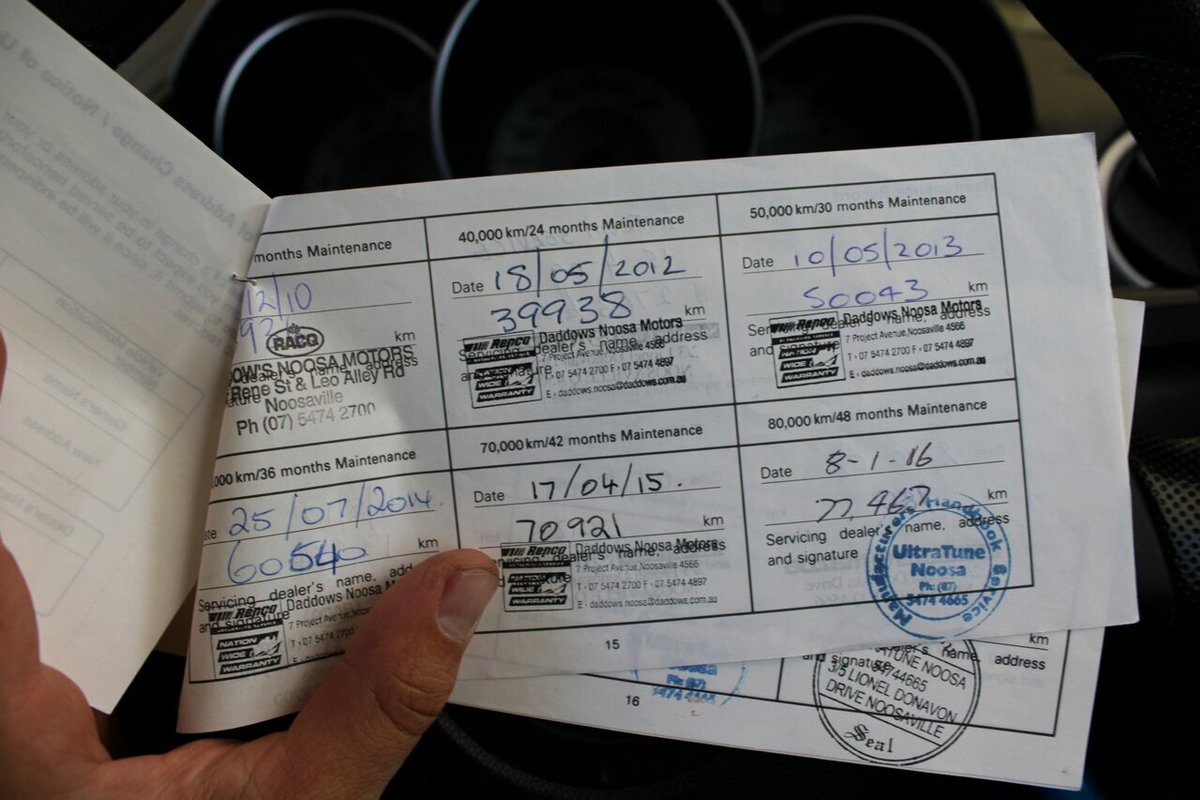 months Maintenance
12/10
km
RACQ
OW'S NOOSA MOTORS
dealer's name, address
Rene St & Leo Alley Rd
Noosaville
Ph (07) 5474 2700
40,000 km/24 months Maintenance
Date 18/05/2012
39938 km
Servicing dealer's name, address
and signature
Repco
NATION
WIDE
WARRANTY
Daddows Noosa Motors
7 Project Avenue, Noosaville 4566
T • 07 5474 2700 F • 07 5474 4897
E • daddows.noosa@daddows.com.au
50,000 km/30 months Maintenance
Date 10/05/2013
50043 km
Servicing dealer's name, address
and signature
Repco
NATION
WIDE
WARRANTY
Daddows Noosa Motors
7 Project Avenue, Noosaville 4566
T • 07 5474 2700 F • 07 5474 4897
E • daddows.noosa@daddows.com.au
,000 km/36 months Maintenance
ate 25/07/2014.
60540 km
Servicing dealer's name, add
and signature
Repco
NATION
WIDE
WARRANTY
Daddows Noosa M
7 Project Avenue, Noos
T • 07 5474 2700
E •
70,000 km/42 months Maintenance
Date 17/04/15.
70921 km
dealer's name, address
Repco
NATION
WIDE
WARRANTY
Daddows Noosa Motors
7 Project Avenue, Noosaville 4566
T • 07 5474 2700 F • 07 5474 4897
E • daddows.noosa@daddows.com.au
80,000 km/48 months Maintenance
Date 8-1-16
77,467 km
Servicing dealer's name, address
and signature
Manufacturers Handbook Service
UltraTune
Noosa
Ph: (07)
5474 4665
15
km
dealer's name, address
and signature
TUNE NOOSA
54744665
3/5 LIONEL DONAVON
DRIVE NOOSAVILLE
Seal
Ph: (07)
5474 4665
16